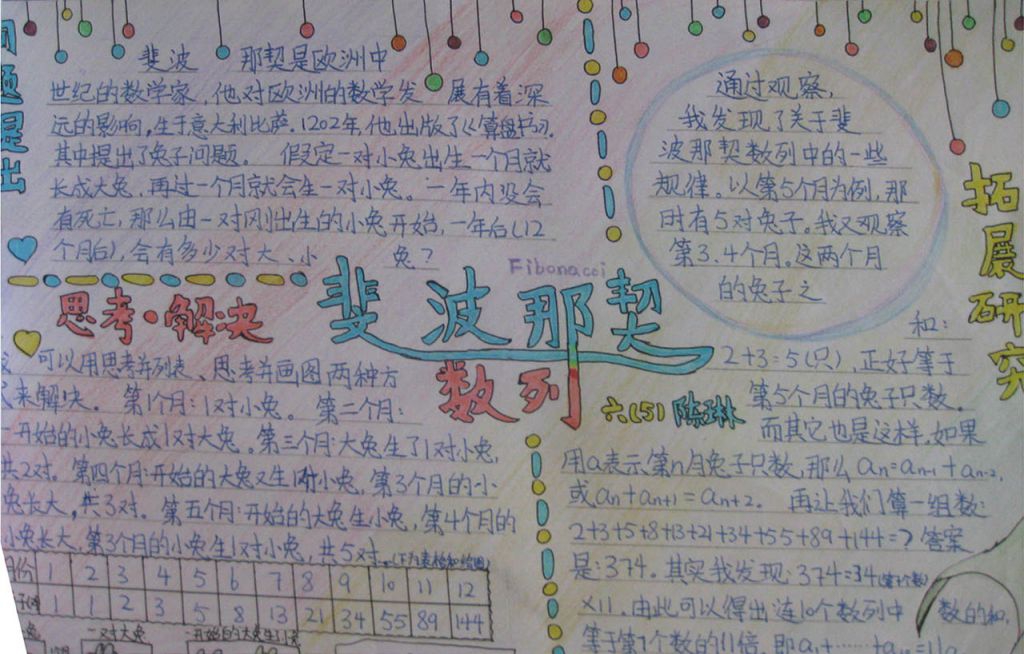 问题提出
斐波 那契是欧洲中
世纪的数学家,他对欧洲的数学发 展有着深
远的影响,生于意大利比萨.1202年,他出版了《算盘书》.
其中提出了兔子问题。 假设定一对小兔出生一个月就
长成大兔,再过一个月就会生一对小兔。一年内没会
有死亡,那么由一对刚出生的小兔开始,一年后(12
个月后),会有多少对大、小 兔?
思考·解决
可以用思考并列表、思考并画图两种方
来解决。 第1个月:1对小兔。 第二个月:
一开始的小兔长成1对大兔。第三个月:大兔生了1对小兔,
共2对。第四个月:开始的大兔又生1对小兔,第3个月的小
兔长大,共3对。第五个月:开始的大兔生小兔,第4个月的
小兔长大,第3个月的小兔生1对小兔,共5对.(下为表格和绘图)
月份 1 2 3 4 5 6 7 8 9 10 11 12
1 1 2 3 5 8 13 21 34 55 89 144
一对大兔
开始的大兔生1只
Fibonacci
斐波那契
数列
六(5) 陈琳
拓展研究
通过观察,
我发现了关于斐
波那契数列中的一些
规律。以第5个月为例,那
时有5对兔子。我又观察
第3.4个月。这两个月
的兔子之
和:
2+3=5(只),正好等于
第5个月的兔子只数。
而其它也是这样,如果
用a表示第n月兔子只数,那么an=an-1+an-2,
或an+an+1=an+2。 再让我们算一组数:
2+3+5+8+13+21+34+55+89+144=?答案
是:374。其实我发现:374=34(第7个数)
×11.由此可以得出连10个数列中 数的和,
等于第7个数的11倍.即a1+……+a10=11a